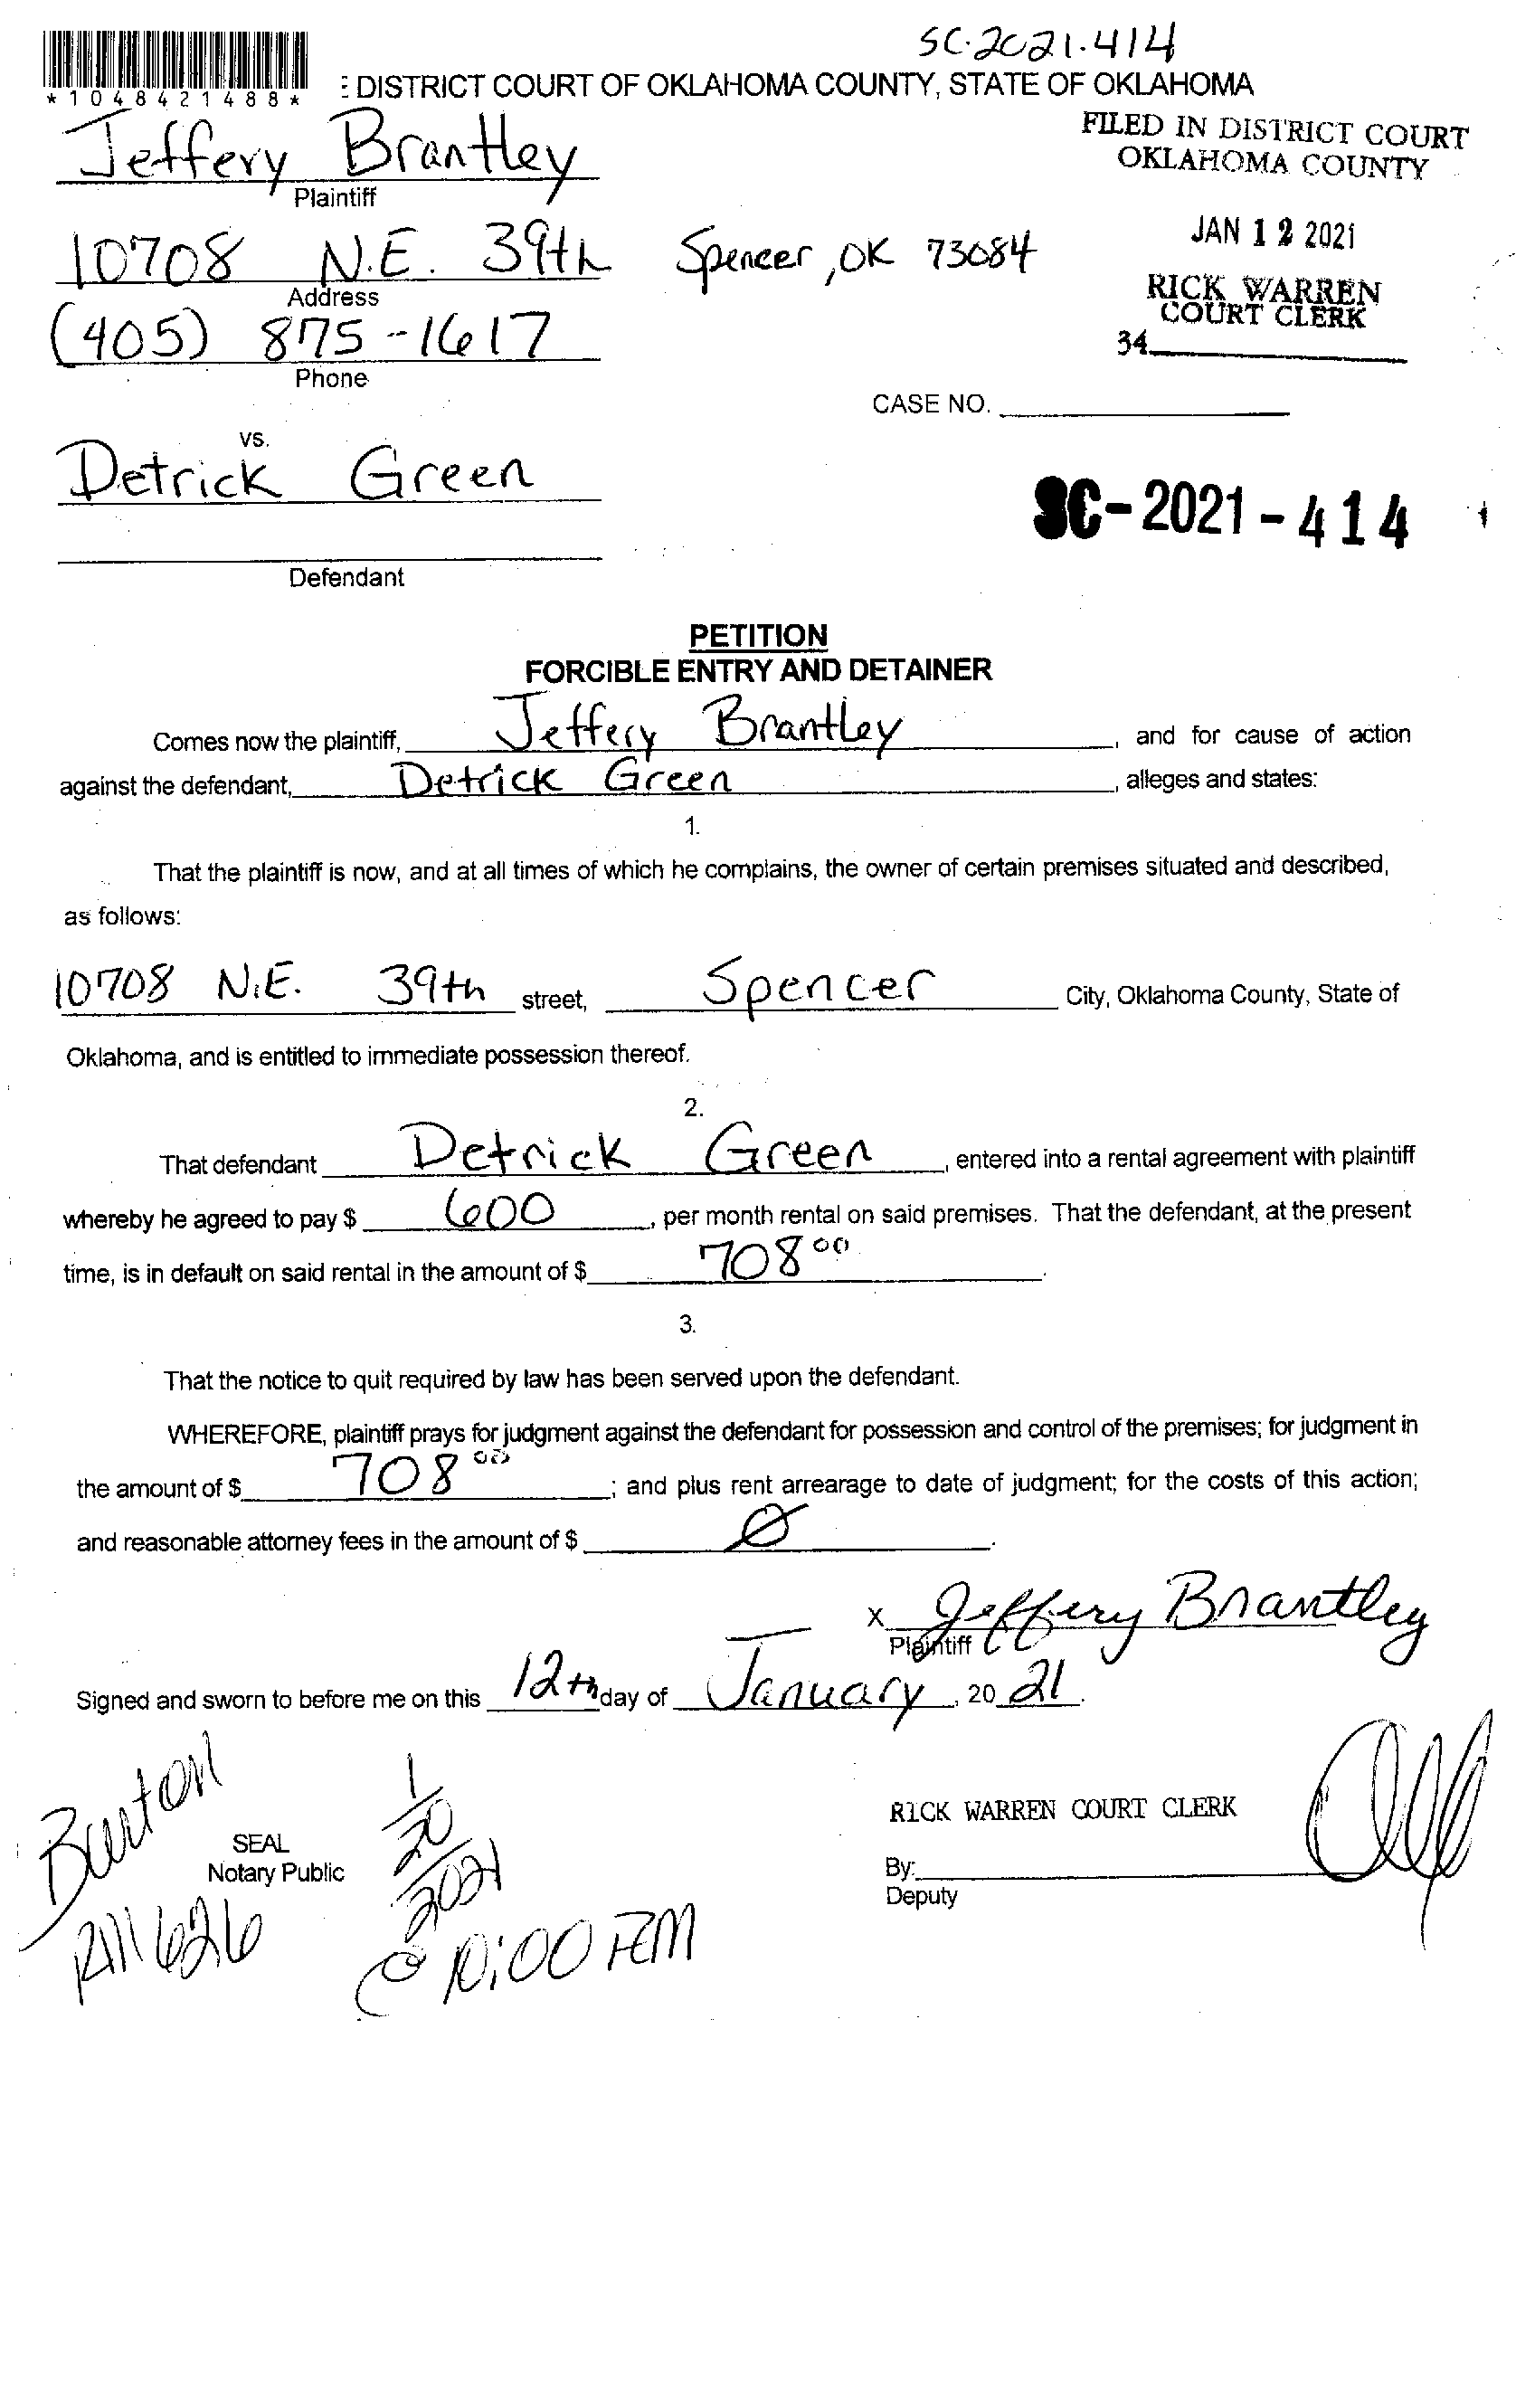 SC-2021-414
*1048421488*
DISTRICT COURT OF OKLAHOMA COUNTY, STATE OF OKLAHOMA
FILED IN DISTRICT COURT
OKLAHOMA COUNTY
Jeffery Brantley
Plaintiff
JAN 12 2021
10708 N.E. 39th Spencer, OK 73084
Address
RICK WARREN
COURT CLERK
(405) 875-1617
34
Phone
CASE NO.
vs.
Detrick Green
SC-2021-414
Defendant
PETITION
FORCIBLE ENTRY AND DETAINER
Comes now the plaintiff, Jeffery Brantley, and for cause of action
against the defendant, Detrick Green, alleges and states:
1.
That the plaintiff is now, and at all times of which he complains, the owner of certain premises situated and described,
as follows:
10708 N.E. 39th street, Spencer City, Oklahoma County, State of
Oklahoma, and is entitled to immediate possession thereof.
2.
That defendant Detrick Green, entered into a rental agreement with plaintiff
whereby he agreed to pay $ 600, per month rental on said premises. That the defendant, at the present
time, is in default on said rental in the amount of $ 708 00.
3.
That the notice to quit required by law has been served upon the defendant.
WHEREFORE, plaintiff prays for judgment against the defendant for possession and control of the premises; for judgment in
the amount of $ 708 00; and plus rent arrearage to date of judgment; for the costs of this action;
and reasonable attorney fees in the amount of $ Ø.
x Jeffery Brantley
Plaintiff
Signed and sworn to before me on this 12th day of January, 2021.
Burton
1/20/2021
RICK WARREN COURT CLERK
SEAL
Notary Public
By:
Deputy
RM 626
@ 10:00 AM